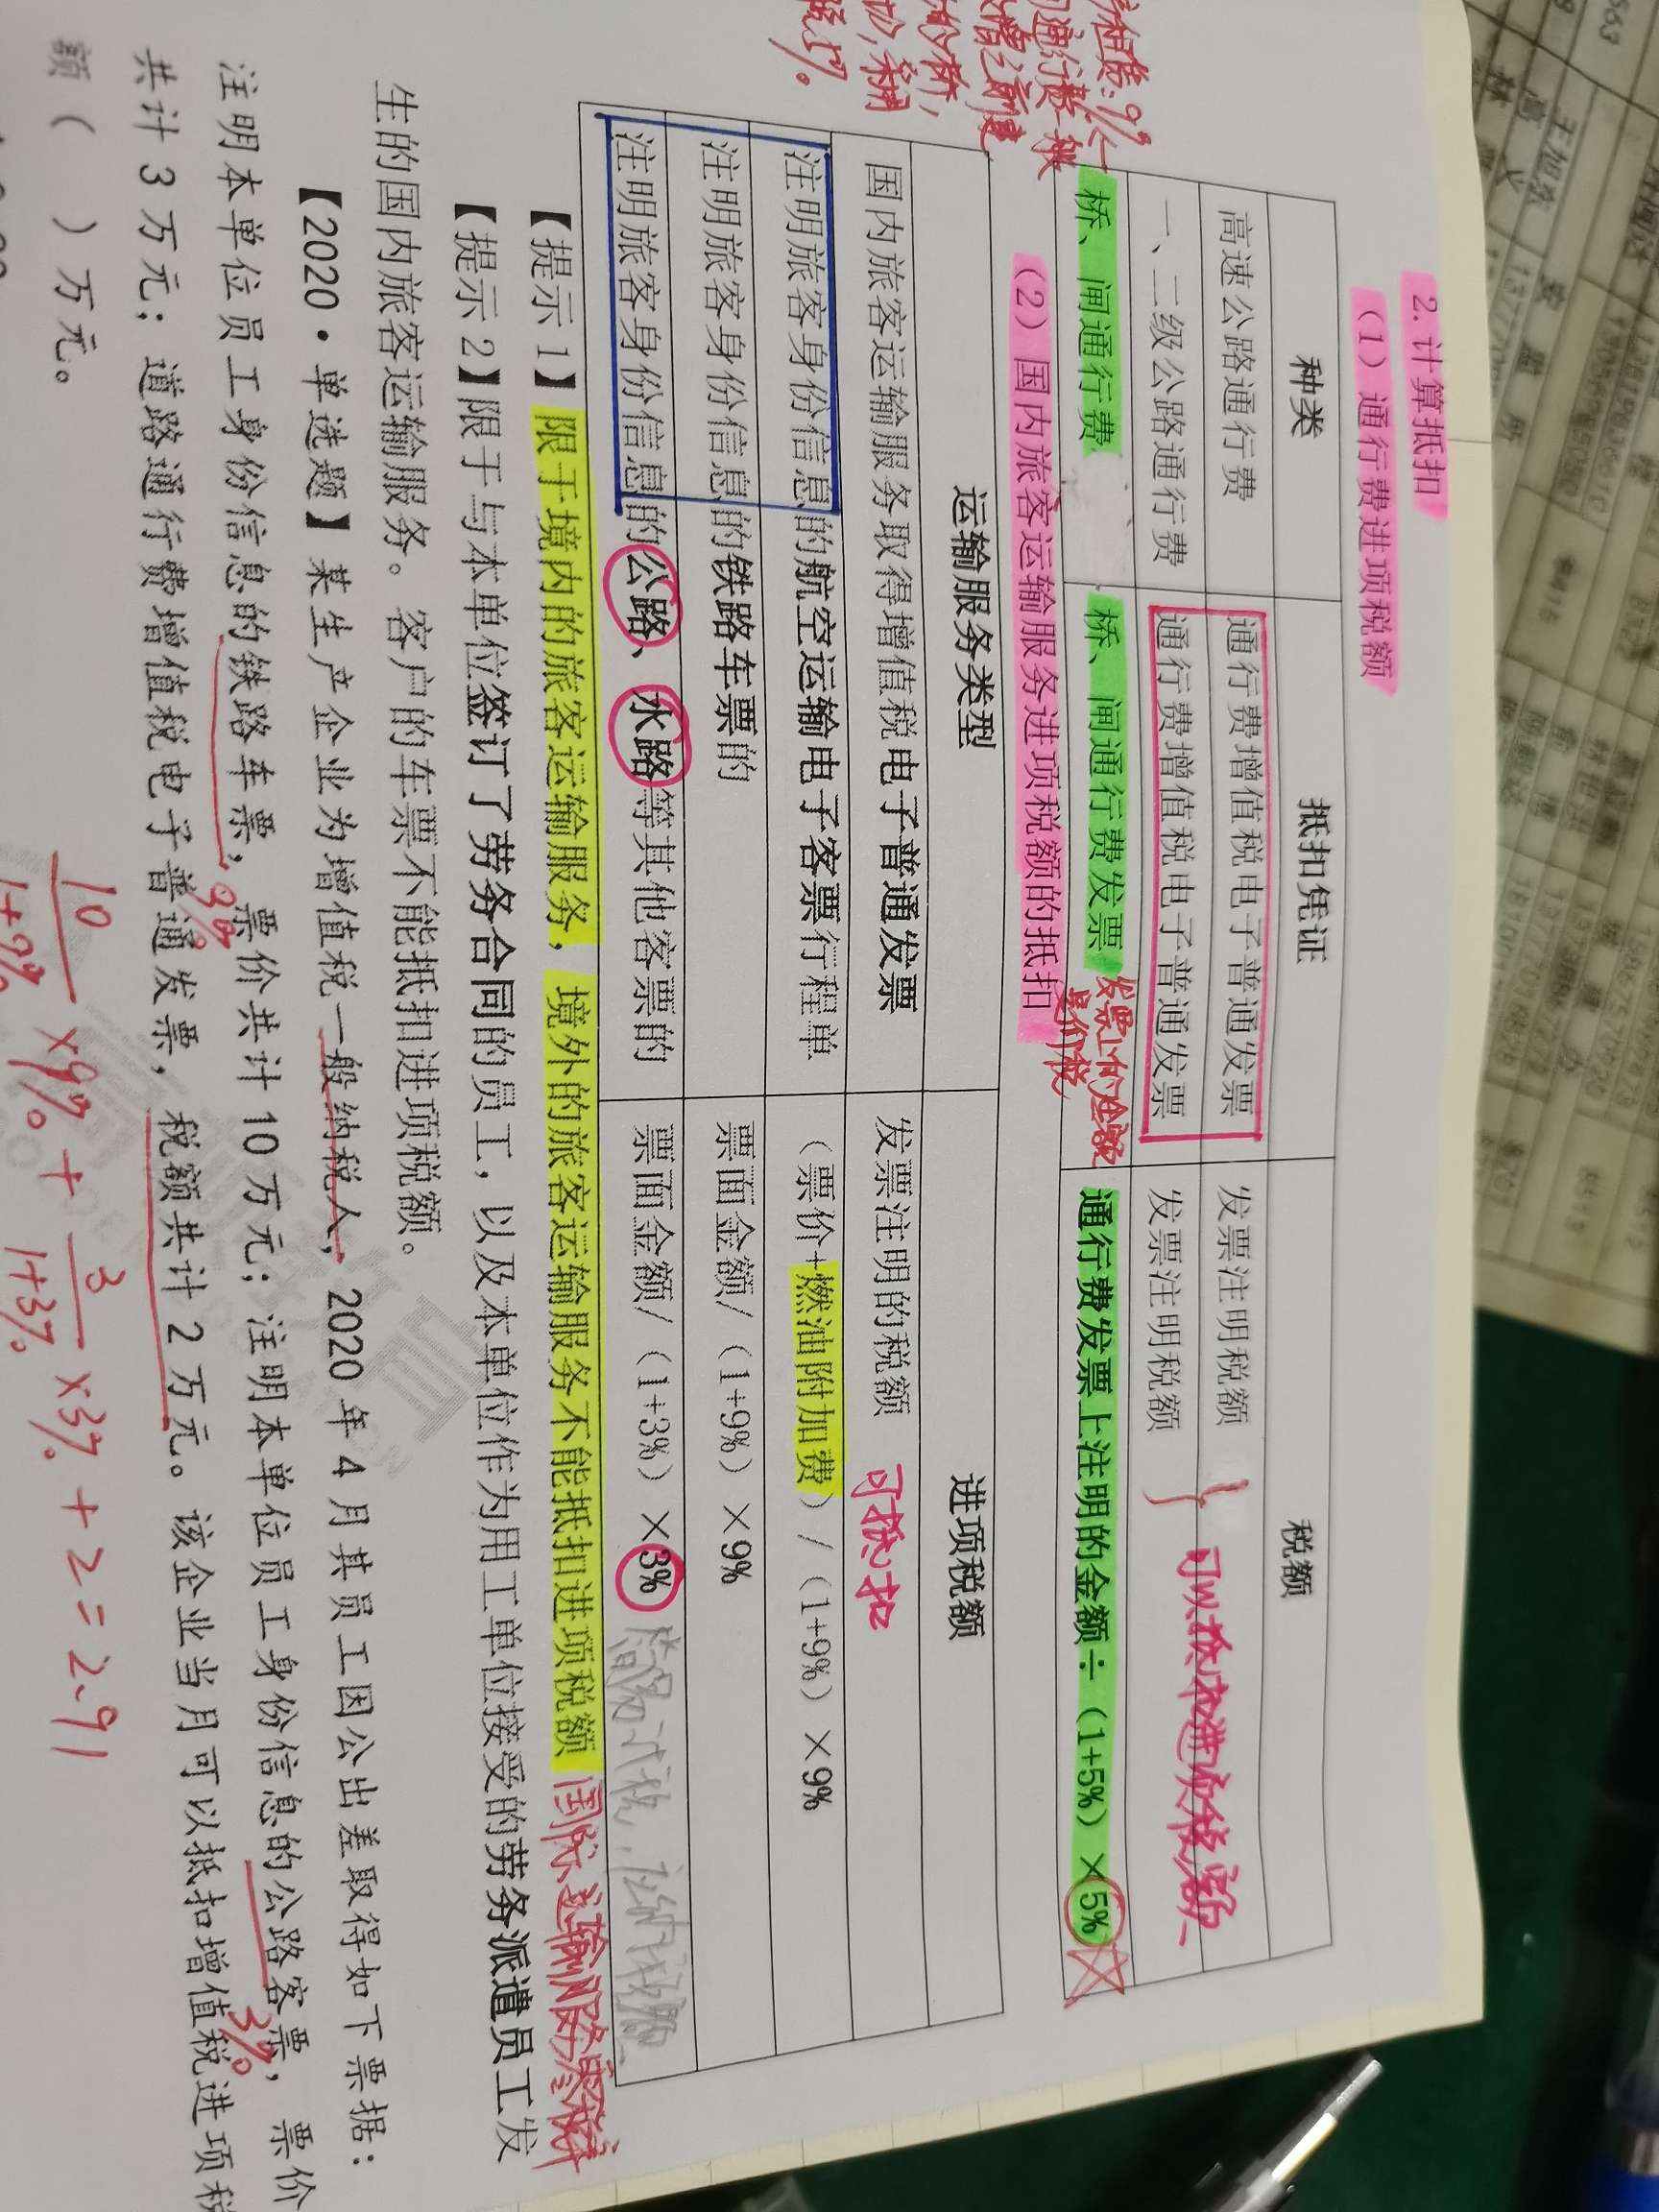 2.计算抵扣
（1）通行费进项税额
种类 抵扣凭证 税额
高速公路通行费 通行费增值税电子普通发票 发票注明税额
一、二级公路通行费 通行费增值税电子普通发票 发票注明税额
可以抵扣进项税额
桥、闸通行费 桥、闸通行费发票 通行费发票上注明的金额÷（1+5%）×5%
发票上的金额
是价税
（2）国内旅客运输服务进项税额的抵扣
运输服务类型 进项税额
国内旅客运输服务取得增值税电子普通发票 发票注明的税额 可抵扣
注明旅客身份信息的航空运输电子客票行程单 （票价+燃油附加费）/（1+9%）×9%
注明旅客身份信息的铁路车票的 票面金额/（1+9%）×9%
注明旅客身份信息的公路、水路等其他客票的 票面金额/（1+3%）×3%
【提示1】限于境内的旅客运输服务，境外的旅客运输服务不能抵扣进项税额 国际运输服务
【提示2】限于与本单位签订了劳务合同的员工，以及本单位作为用工单位接受的劳务派遣员工发
生的国内旅客运输服务。客户的车票不能抵扣进项税额。
【2020·单选题】某生产企业为增值税一般纳税人，2020年4月其员工因公出差取得如下票据：
注明本单位员工身份信息的铁路车票，票价共计10万元；注明本单位员工身份信息的公路客票，票价
9% 3%
共计3万元；道路通行费增值税电子普通发票，税额共计2万元。该企业当月可以抵扣增值税进项税
额（ ）万元。
10/1+9% ×9% + 3/1+3% ×3% + 2 = 2.91